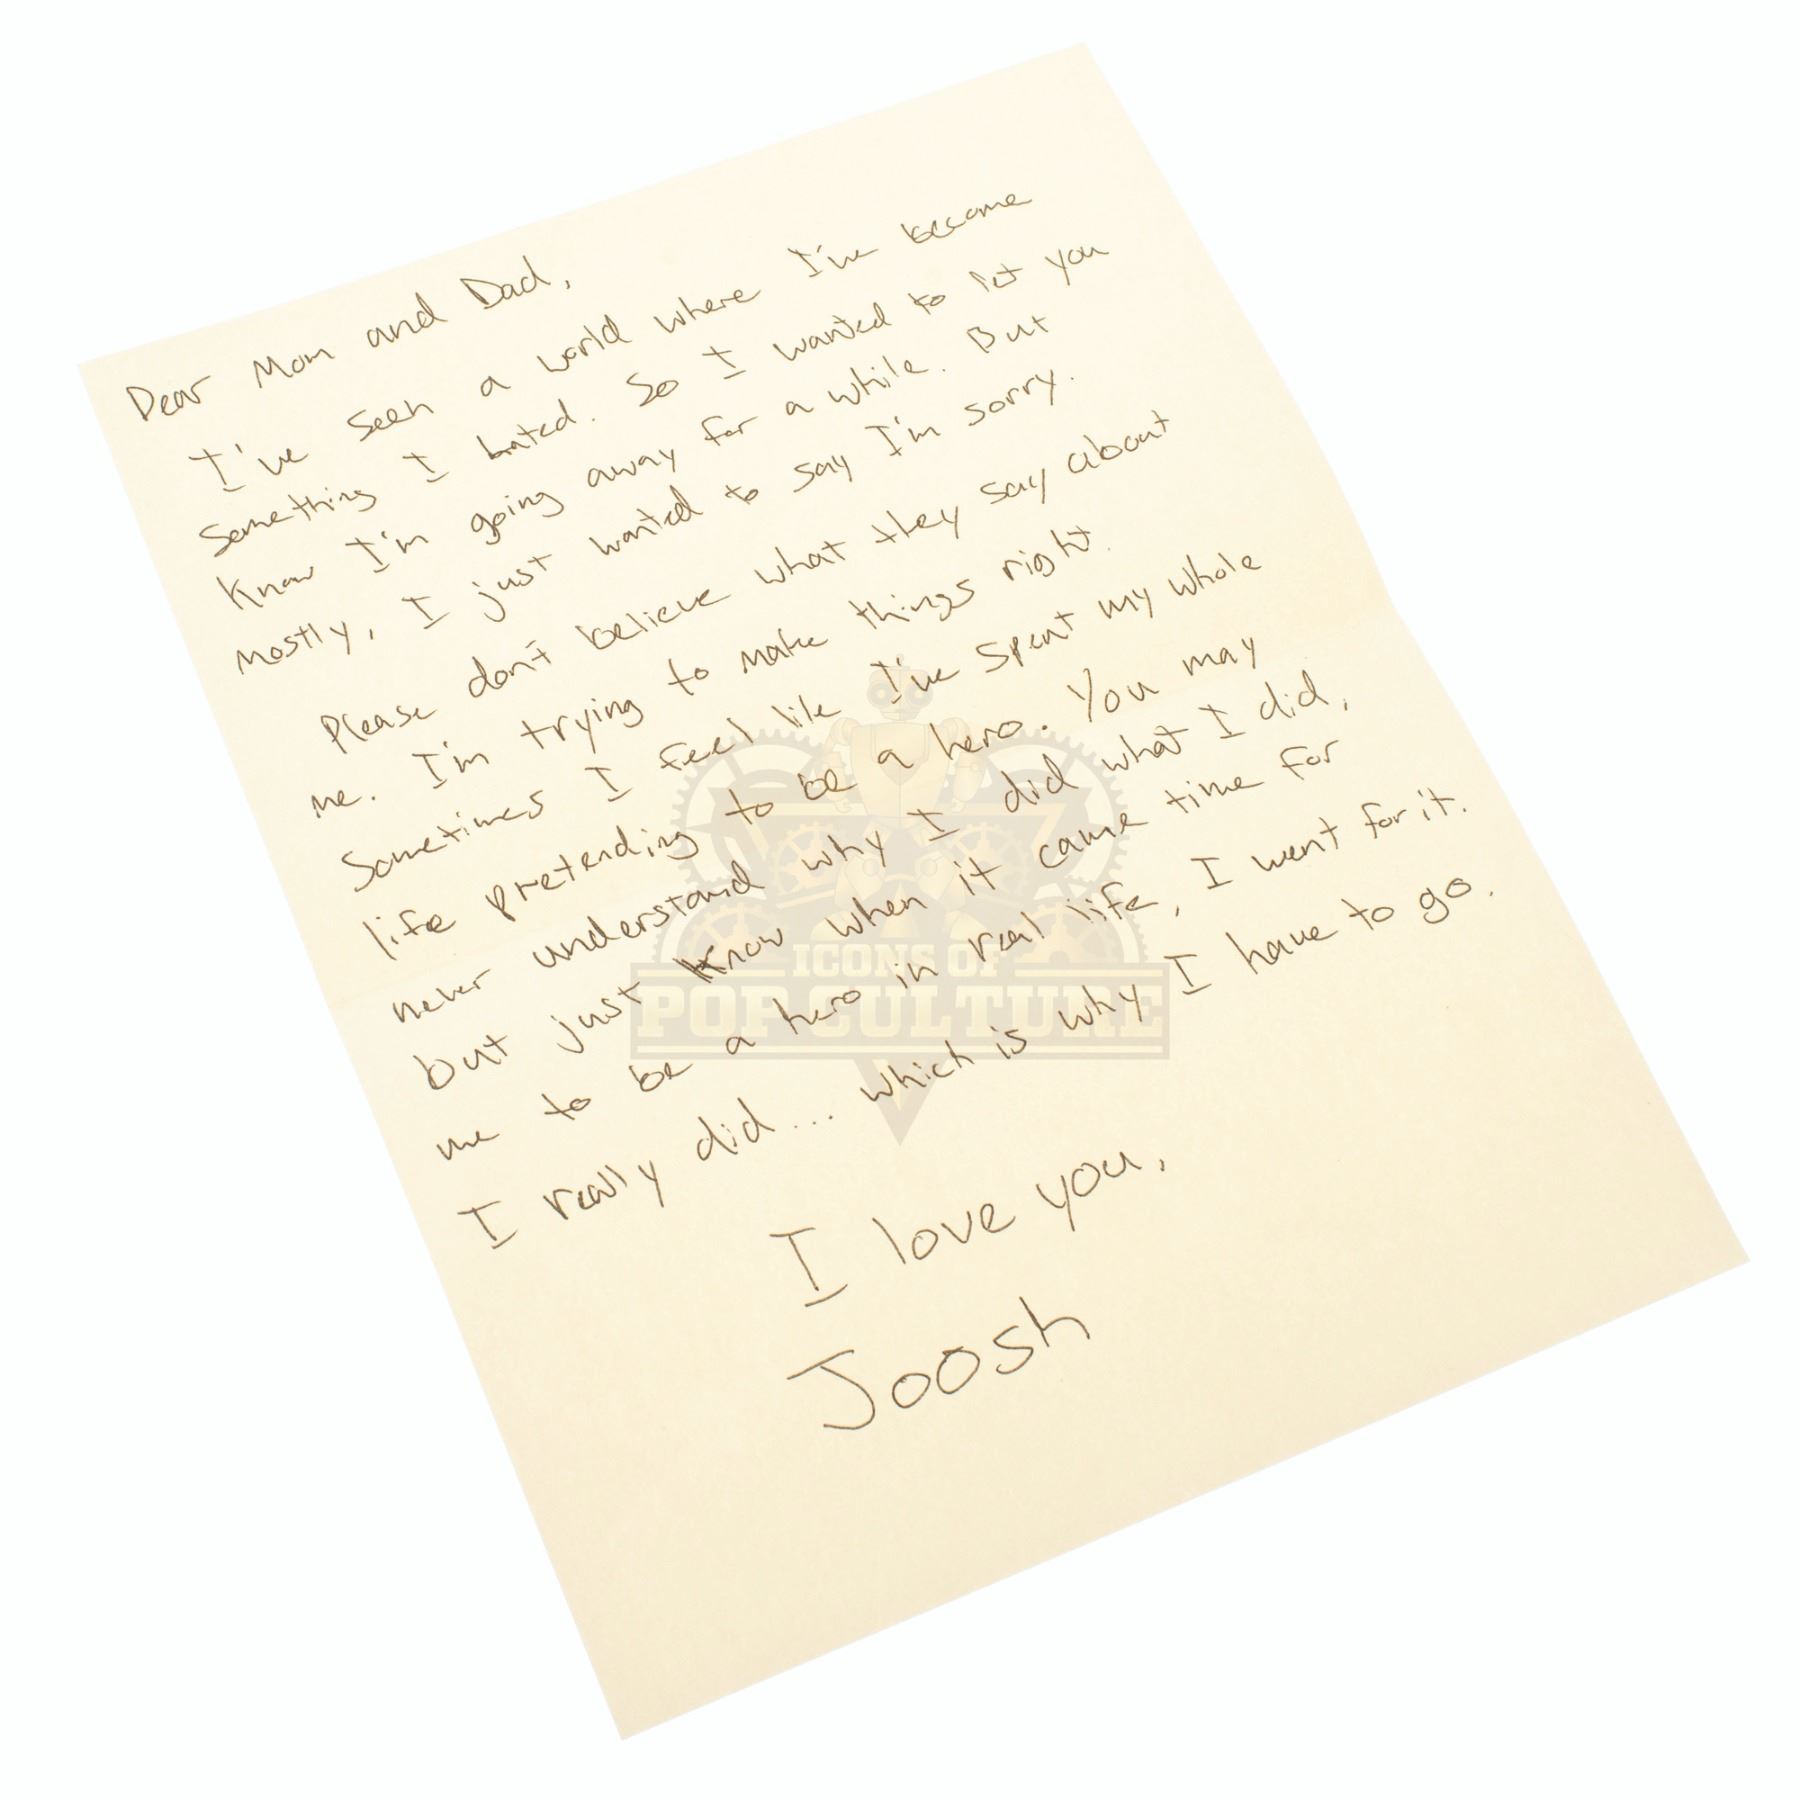 Dear Mom and Dad,
I've seen a world where I've become
something I hated. So I wanted to let you
know I'm going away for a while. But
mostly, I just wanted to say I'm sorry.
Please don't believe what they say about
me. I'm trying to make things right.
Sometimes I feel like I've spent my whole
life pretending to be a hero. You may
never understand why I did what I did,
but just know when it came time for
me to be a hero in real life, I went for it.
I really did... which is why I have to go.
I love you,
Joosh
ICONS OF
POP CULTURE